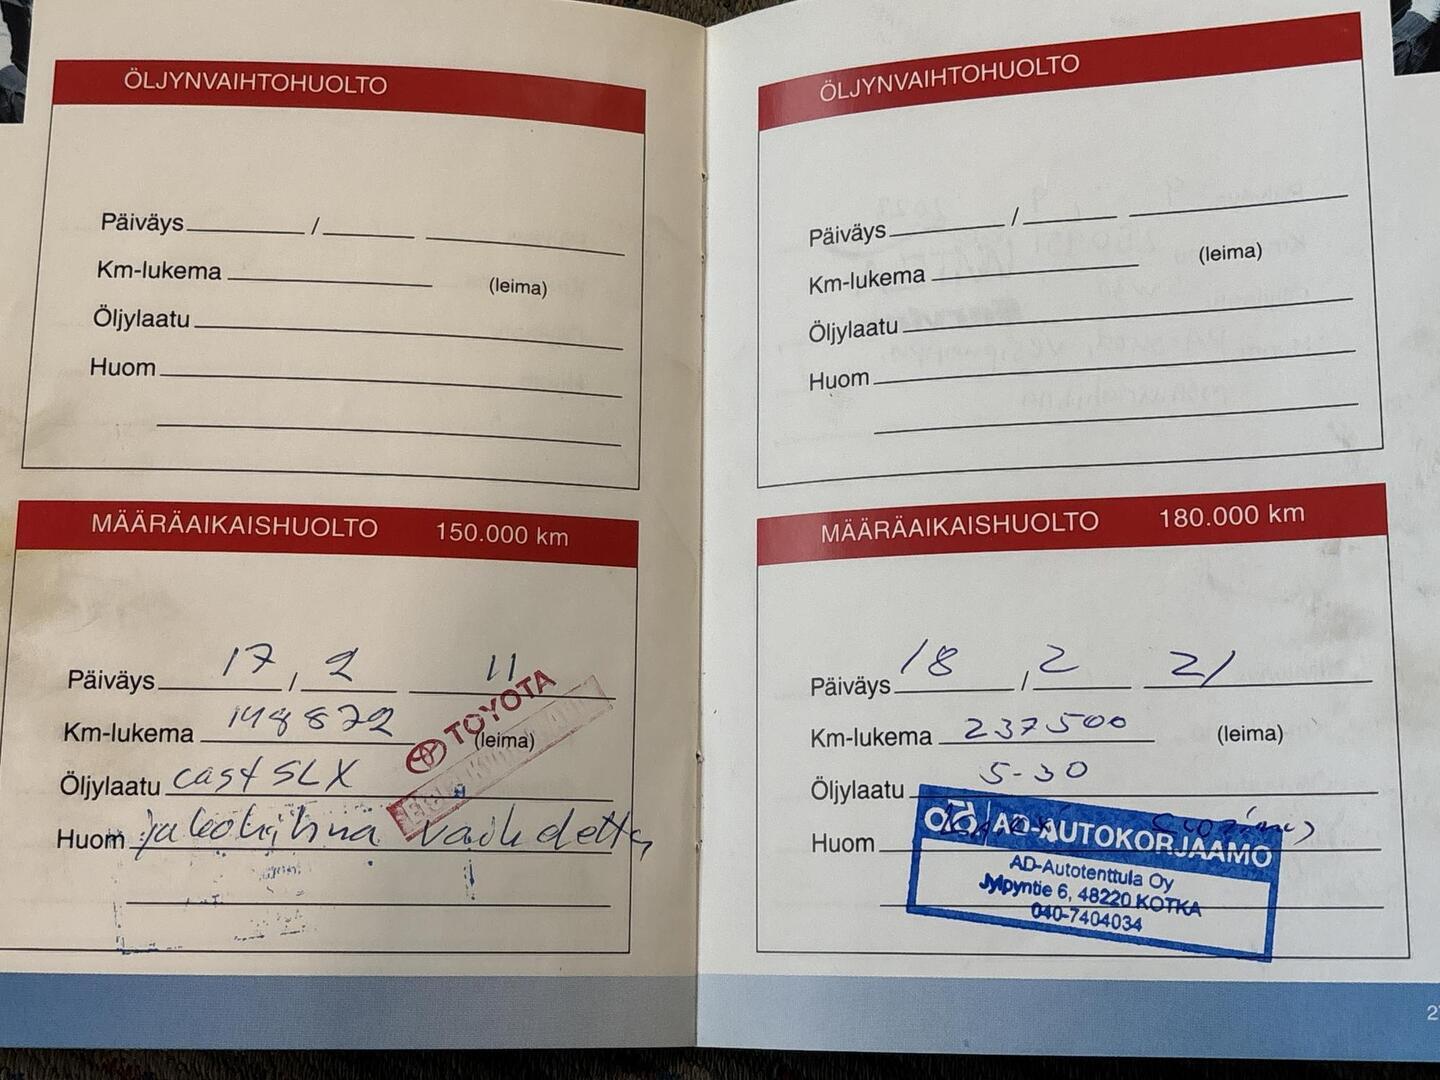 ÖLJYNVAIHTOHUOLTO
Päiväys / 
Km-lukema (leima)
Öljylaatu
Huom
MÄÄRÄAIKAISHUOLTO 150.000 km
Päiväys 17 / 2 11
TOYOTA
Km-lukema 148872 (leima)
Öljylaatu cast SLX
Huom jakohihna vaihdettu
ÖLJYNVAIHTOHUOLTO
Päiväys /
Km-lukema (leima)
Öljylaatu
Huom
MÄÄRÄAIKAISHUOLTO 180.000 km
Päiväys 18 / 2 21
Km-lukema 237500 (leima)
Öljylaatu 5-30
Huom
AD-AUTOKORJAAMO
AD-Autotenttula Oy
Jylpyntie 6, 48220 KOTKA
040-7404034